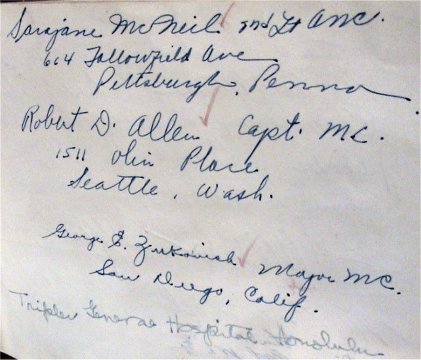 Sarajane McNeil 2nd Lt ANC.
604 Fallowfield Ave
Pittsburgh, Penna
Robert D. Allen Capt. MC.
1511 Olin Place
Seattle, Wash.
George E. Major MC.
San Diego, Calif.
Tripler General Hospital, Honolulu